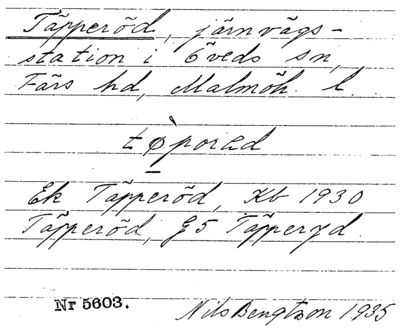 Täpperöd, järnvägs-
station i Öveds sn,
Färs hd, Malmöh. l.
tø̀porəd
Ek Täpperöd, Kb 1930
Täpperöd, G5 Täpperyd.
Nr 5603.
Nils Bengtson 1935